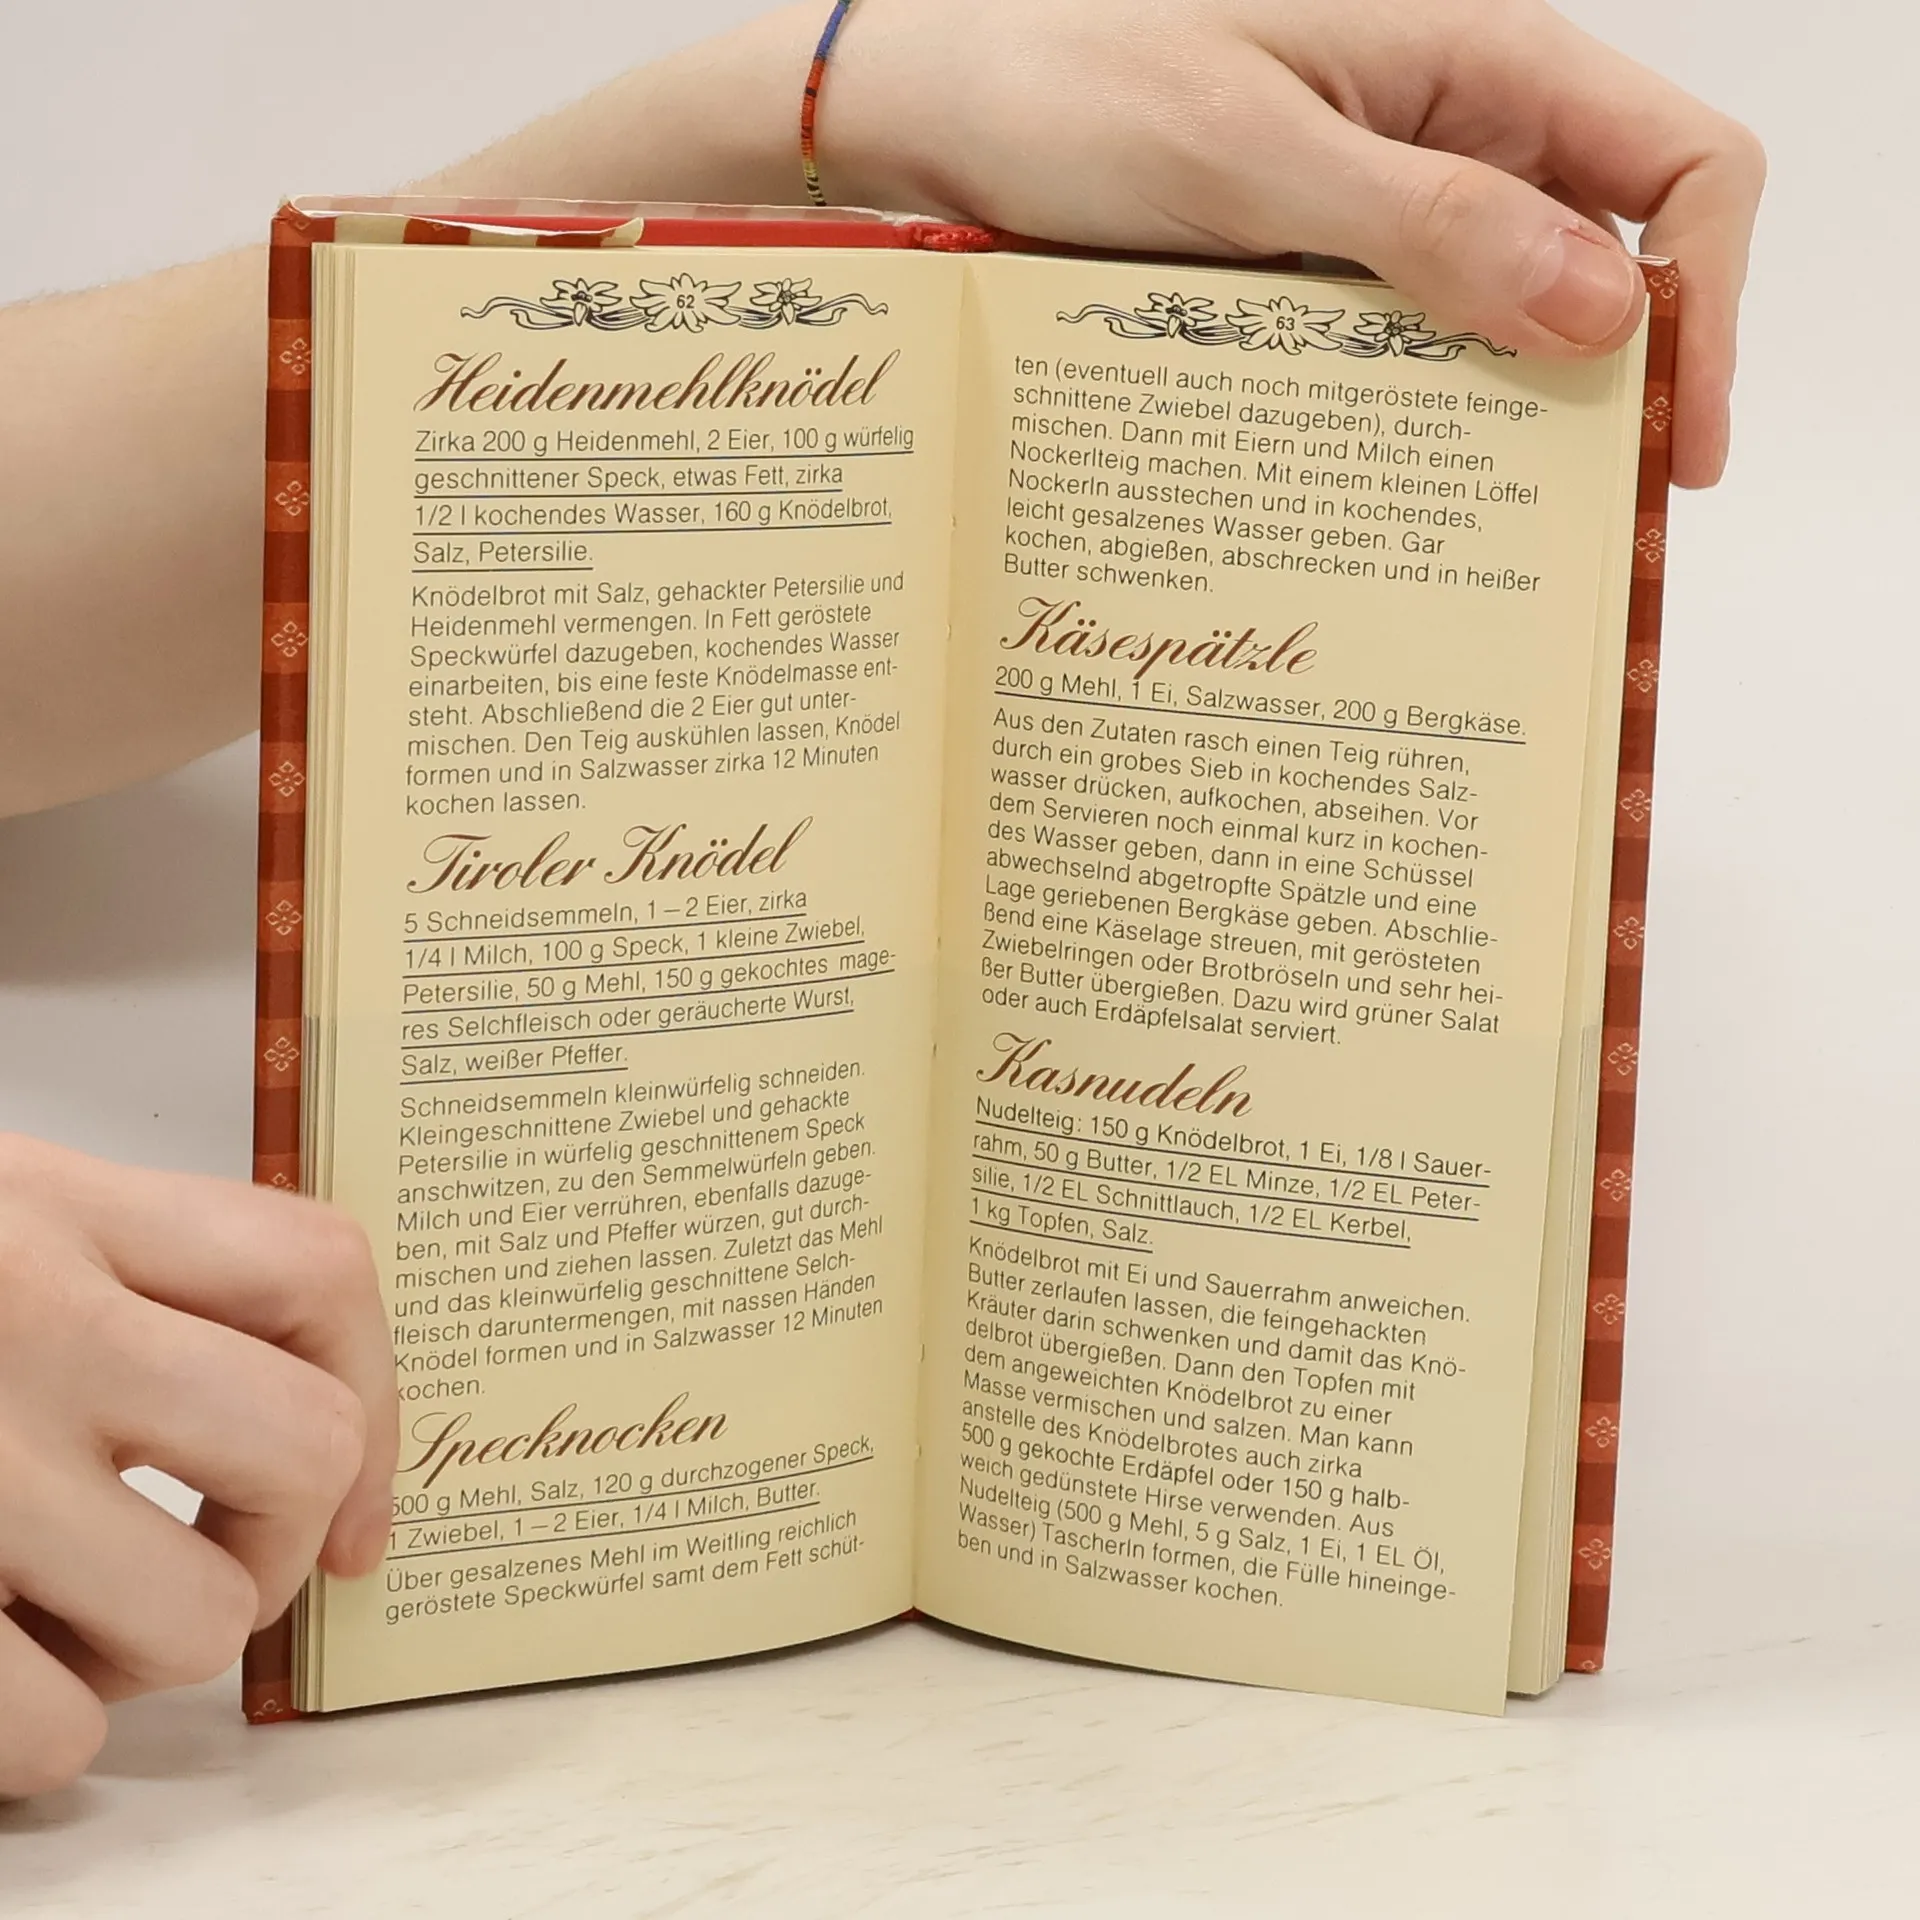 62
Heidenmehlknödel
Zirka 200 g Heidenmehl, 2 Eier, 100 g würfelig
geschnittener Speck, etwas Fett, zirka
1/2 l kochendes Wasser, 160 g Knödelbrot,
Salz, Petersilie.
Knödelbrot mit Salz, gehackter Petersilie und
Heidenmehl vermengen. In Fett geröstete
Speckwürfel dazugeben, kochendes Wasser
einarbeiten, bis eine feste Knödelmasse ent-
steht. Abschließend die 2 Eier gut unter-
mischen. Den Teig auskühlen lassen, Knödel
formen und in Salzwasser zirka 12 Minuten
kochen lassen.
Tiroler Knödel
5 Schneidsemmeln, 1 – 2 Eier, zirka
1/4 l Milch, 100 g Speck, 1 kleine Zwiebel,
Petersilie, 50 g Mehl, 150 g gekochtes mage-
res Selchfleisch oder geräucherte Wurst,
Salz, weißer Pfeffer.
Schneidsemmeln kleinwürfelig schneiden.
Kleingeschnittene Zwiebel und gehackte
Petersilie in würfelig geschnittenem Speck
anschwitzen, zu den Semmelwürfeln geben.
Milch und Eier verrühren, ebenfalls dazuge-
ben, mit Salz und Pfeffer würzen, gut durch-
mischen und ziehen lassen. Zuletzt das Mehl
und das kleinwürfelig geschnittene Selch-
fleisch daruntermengen, mit nassen Händen
Knödel formen und in Salzwasser 12 Minuten
kochen.
Specknocken
500 g Mehl, Salz, 120 g durchzogener Speck,
1 Zwiebel, 1 – 2 Eier, 1/4 l Milch, Butter.
Über gesalzenes Mehl im Weitling reichlich
geröstete Speckwürfel samt dem Fett schüt-
63
ten (eventuell auch noch mitgeröstete feinge-
schnittene Zwiebel dazugeben), durch-
mischen. Dann mit Eiern und Milch einen
Nockerlteig machen. Mit einem kleinen Löffel
Nockerln ausstechen und in kochendes,
leicht gesalzenes Wasser geben. Gar
kochen, abgießen, abschrecken und in heißer
Butter schwenken.
Käsespätzle
200 g Mehl, 1 Ei, Salzwasser, 200 g Bergkäse.
Aus den Zutaten rasch einen Teig rühren,
durch ein grobes Sieb in kochendes Salz-
wasser drücken, aufkochen, abseihen. Vor
dem Servieren noch einmal kurz in kochen-
des Wasser geben, dann in eine Schüssel
abwechselnd abgetropfte Spätzle und eine
Lage geriebenen Bergkäse geben. Abschlie-
ßend eine Käselage streuen, mit gerösteten
Zwiebelringen oder Brotbröseln und sehr hei-
ßer Butter übergießen. Dazu wird grüner Salat
oder auch Erdäpfelsalat serviert.
Kasnudeln
Nudelteig: 150 g Knödelbrot, 1 Ei, 1/8 l Sauer-
rahm, 50 g Butter, 1/2 EL Minze, 1/2 EL Peter-
silie, 1/2 EL Schnittlauch, 1/2 EL Kerbel,
1 kg Topfen, Salz.
Knödelbrot mit Ei und Sauerrahm anweichen.
Butter zerlaufen lassen, die feingehackten
Kräuter darin schwenken und damit das Knö-
delbrot übergießen. Dann den Topfen mit
dem angeweichten Knödelbrot zu einer
Masse vermischen und salzen. Man kann
anstelle des Knödelbrotes auch zirka
500 g gekochte Erdäpfel oder 150 g halb-
weich gedünstete Hirse verwenden. Aus
Nudelteig (500 g Mehl, 5 g Salz, 1 Ei, 1 EL Öl,
Wasser) Tascherln formen, die Fülle hineinge-
ben und in Salzwasser kochen.